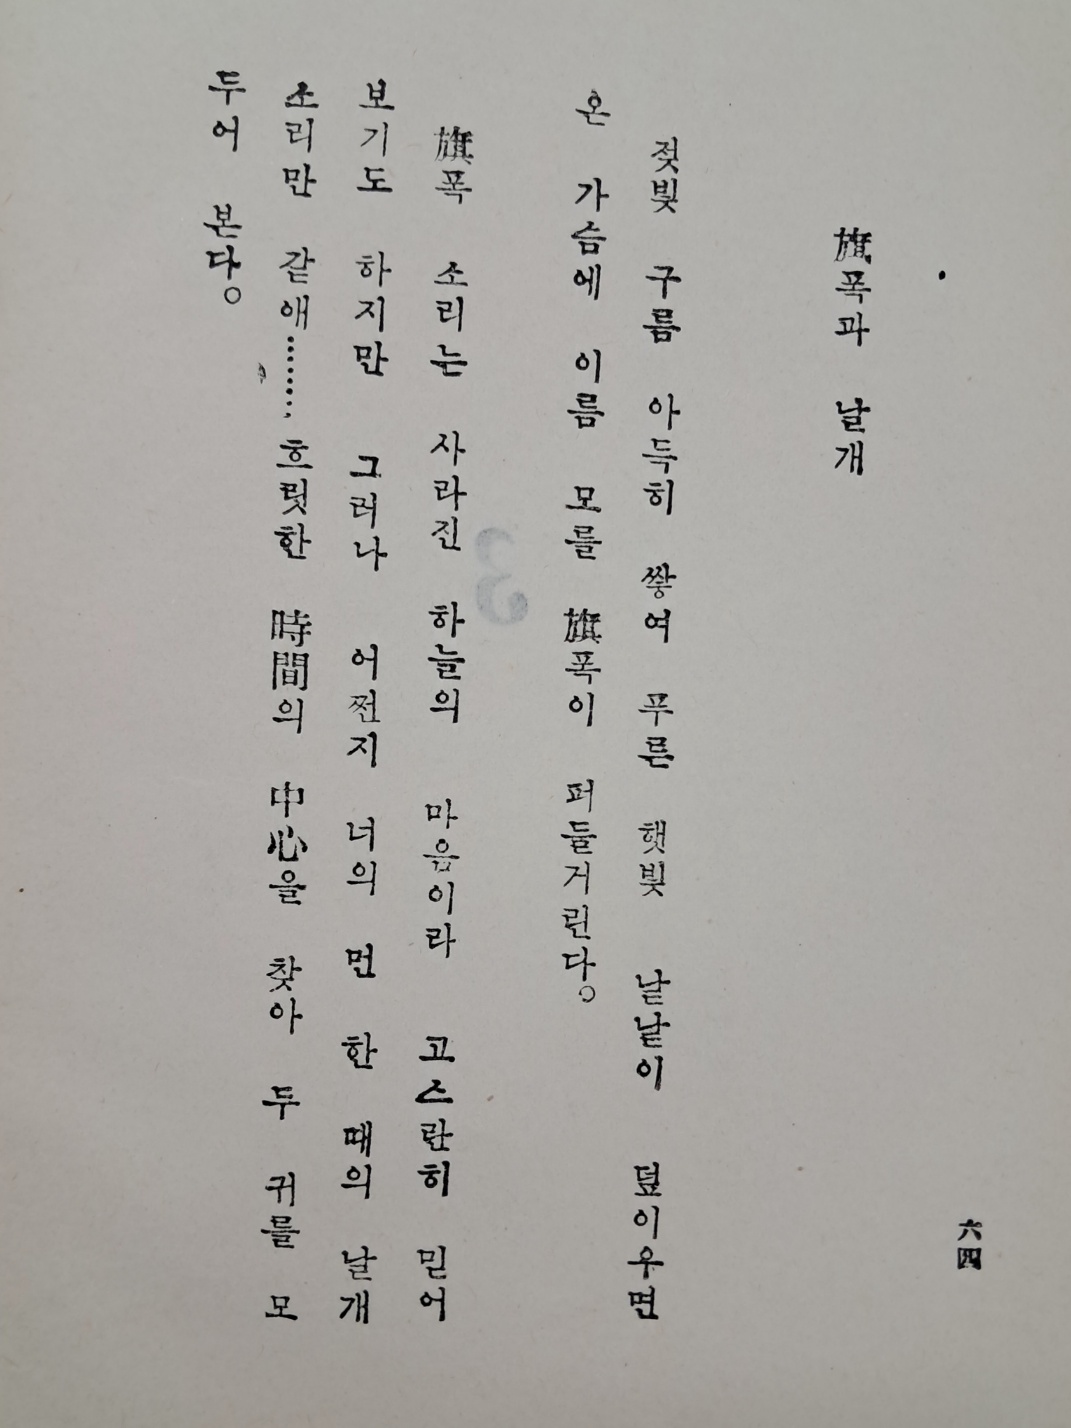 旗폭과 날개
젖빛 구름 아득히 쌓여 푸른 햇빛 낱낱이 덮이우면
온 가슴에 이름 모를 旗폭이 퍼들거린다。
旗폭 소리는 사라진 하늘의 마음이라 고스란히 믿어
보기도 하지만 그러나 어쩐지 너의 먼 한 때의 날개
소리만 같애………흐릿한 時間의 中心을 찾아 두 귀를 모
두어 본다。
六四